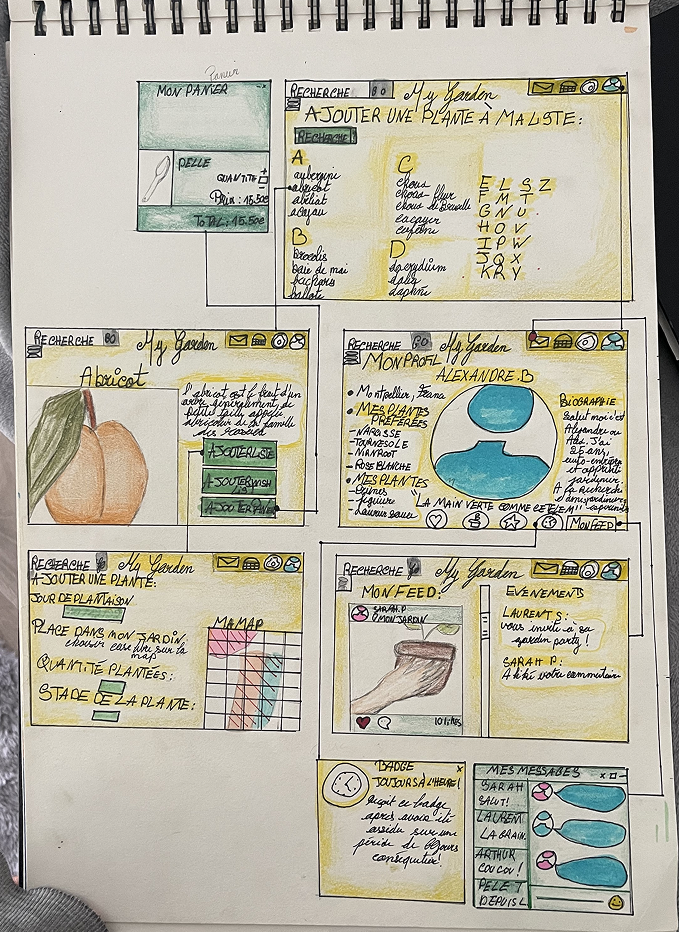 Panier
MON PANIER
PELLE
QUANTITÉ
Prix : 15.50€
TOTAL : 15.50€
RECHERCHE
My Garden
AJOUTER UNE PLANTE A MA LISTE :
RECHERCHE
A
aubergini
abricot
abéliat
acajou
B
brocolis
baie de mai
ballote
C
choux
choux-fleur
choux de bruxelle
cacaoyer
D
dacrydium
dalia
daphné
E L S Z
F M T
G N U
H O V
I P W
J Q X
K R Y
RECHERCHE
My Garden
Abricot
l'abricot est le fruit d'un
arbre généralement de
petite taille appelé
abricotier de la famille
des
AJOUTER LISTE
AJOUTER WISH
LIST
AJOUTER PANIER
RECHERCHE GO
My Garden
MON PROFIL
ALEXANDRE.B
• Montpellier, France
• MES PLANTES
PRÉFÉRÉES
- NARCISSE
- TOURNESOLE
- ROSE BLANCHE
• MES PLANTES
- figuier
- Laurier sauce
BIOGRAPHIE
Salut moi c'est
Alexandre ou
Alex. J'ai
25 ans,
auto-entrepr
et apprenti
jardinier.
A la recherche
d'amis jardiniers
"LA MAIN VERTE COMME CETELEM"
MON FEED
RECHERCHE
My Garden
AJOUTER UNE PLANTE :
JOUR DE PLANTAISON
PLACE DANS MON JARDIN
choisir case libre sur la
map
QUANTITÉ PLANTÉES :
STADE DE LA PLANTE :
MA MAP
RECHERCHE
My Garden
MON FEED :
SARAH.P
MON JARDIN
10 likes
EVENEMENTS
LAURENT S :
vous invite à sa
garden party !
SARAH P :
A liké votre commentaire
BADGE
TOUJOURS A L'HEURE !
Reçoit ce badge
après avoir été
assidu sur une
période de jours
consequitive !
MES MESSAGES
SARAH
SALUT !
LAUREN
LA GRAIN.
ARTHUR
COUCOU !
PELE T
DEPUIS L